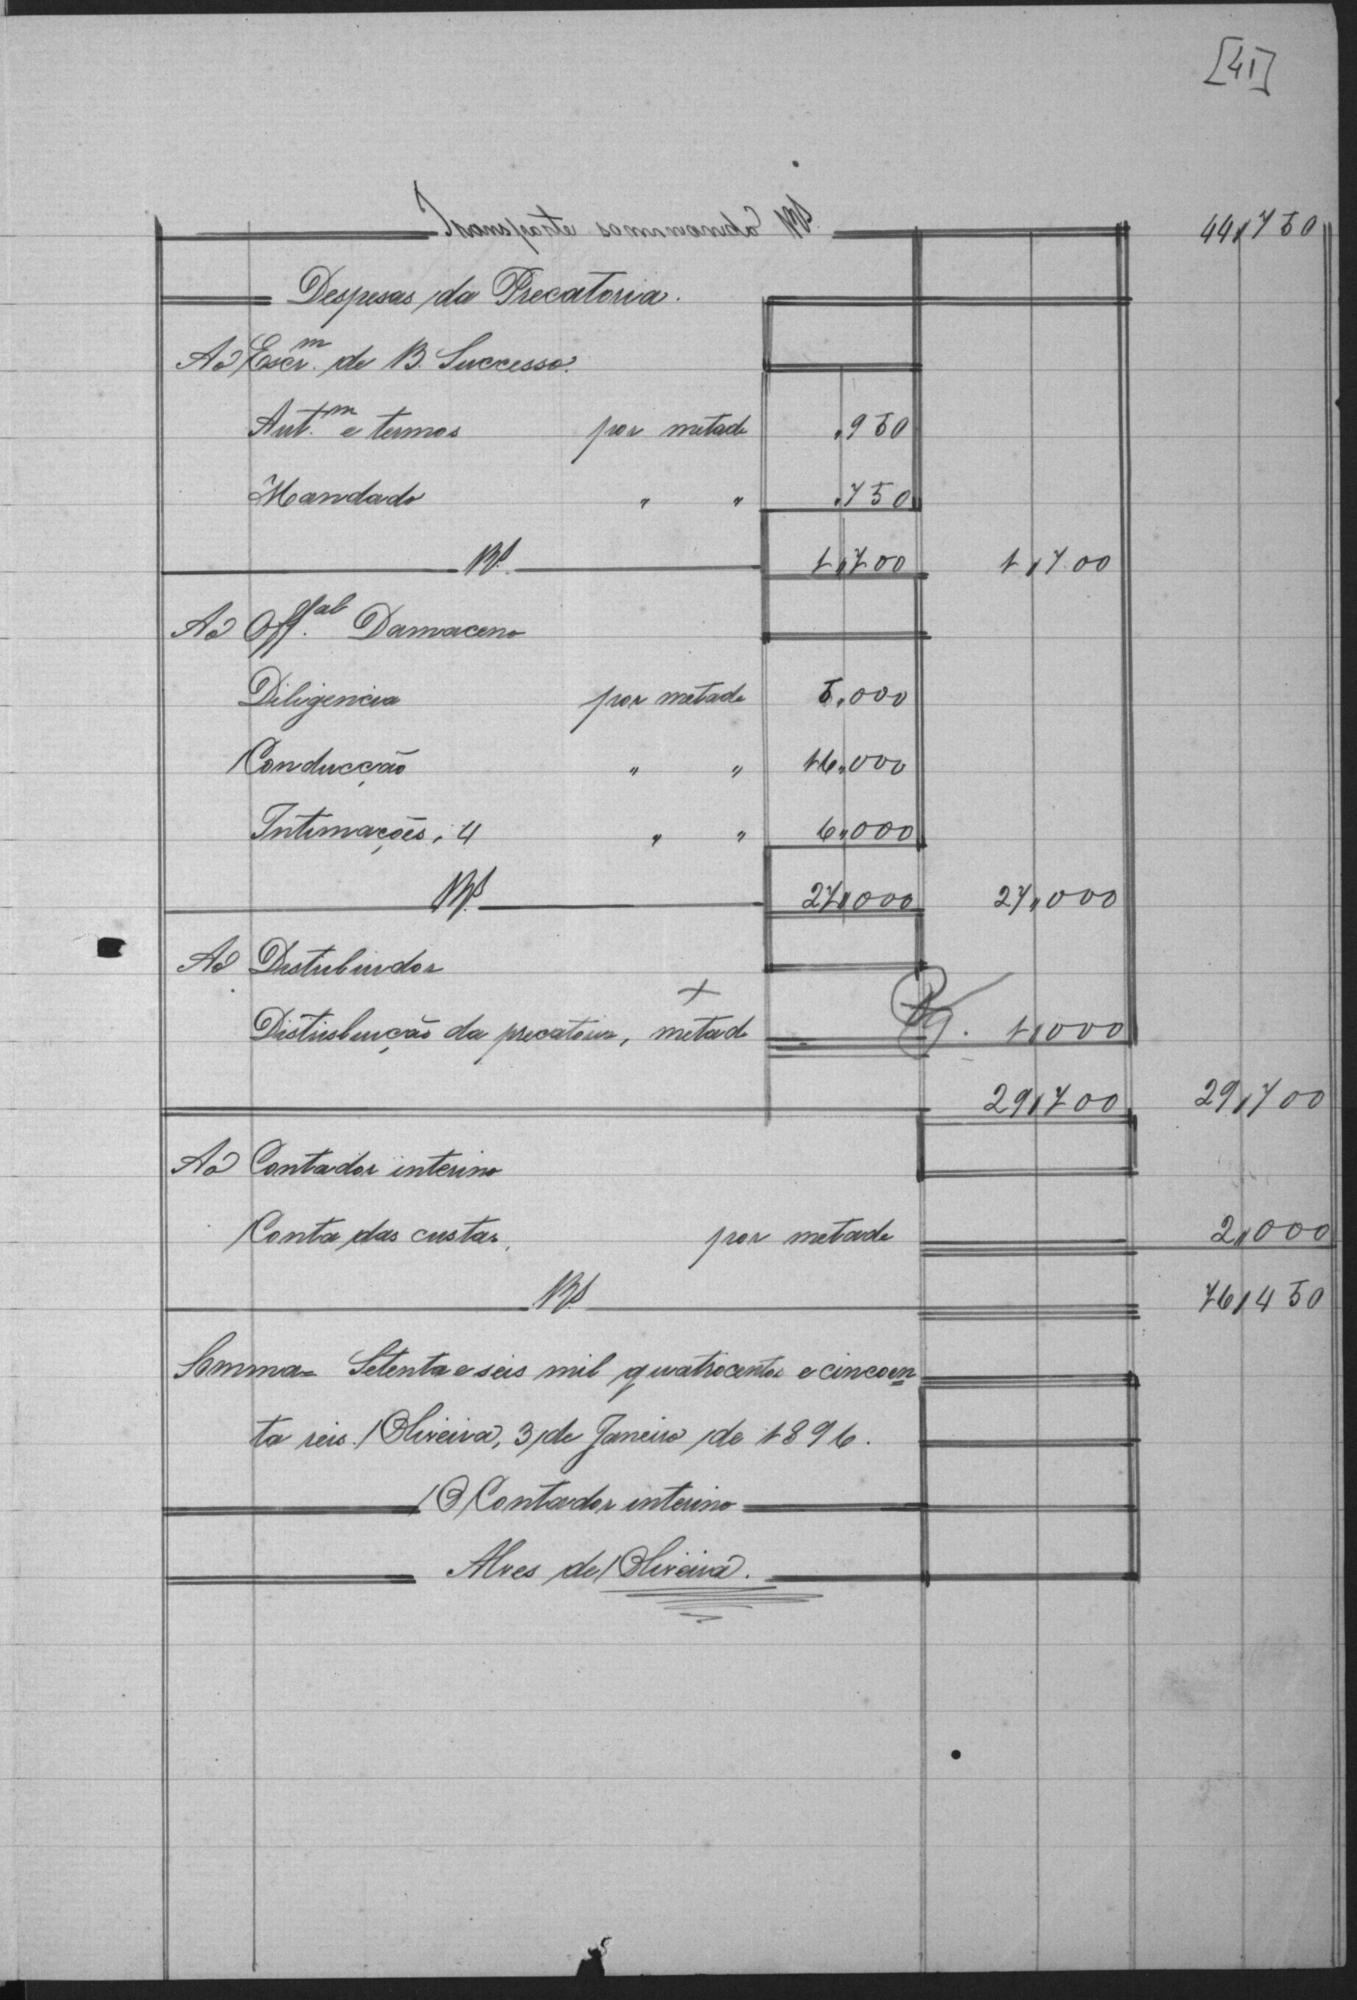 [41]
Transporte 44,750
Despesas da Precatoria.
Ao Escr.m de B. Successo.
Aut.m e termos por metade ,950
Mandado " " ,750
Rs 1,700 1,700
Ao Off.al Damaceno
Diligencia por metade 5,000
Conducção " " 16,000
Intimações, 4 " " 6,000
Rs 27,000 27,000
Ao Distribuidor
Distribuição da precatoria, metade 1,000
29,700 29,700
Ao Contador interino
Conta das custas, por metade 2,000
Rs 76,450
Somma= Setenta e seis mil quatrocentos e cincoen
ta reis. Oliveira, 3 de Janeiro de 1896.
O Contador interino
Alves de Oliveira.